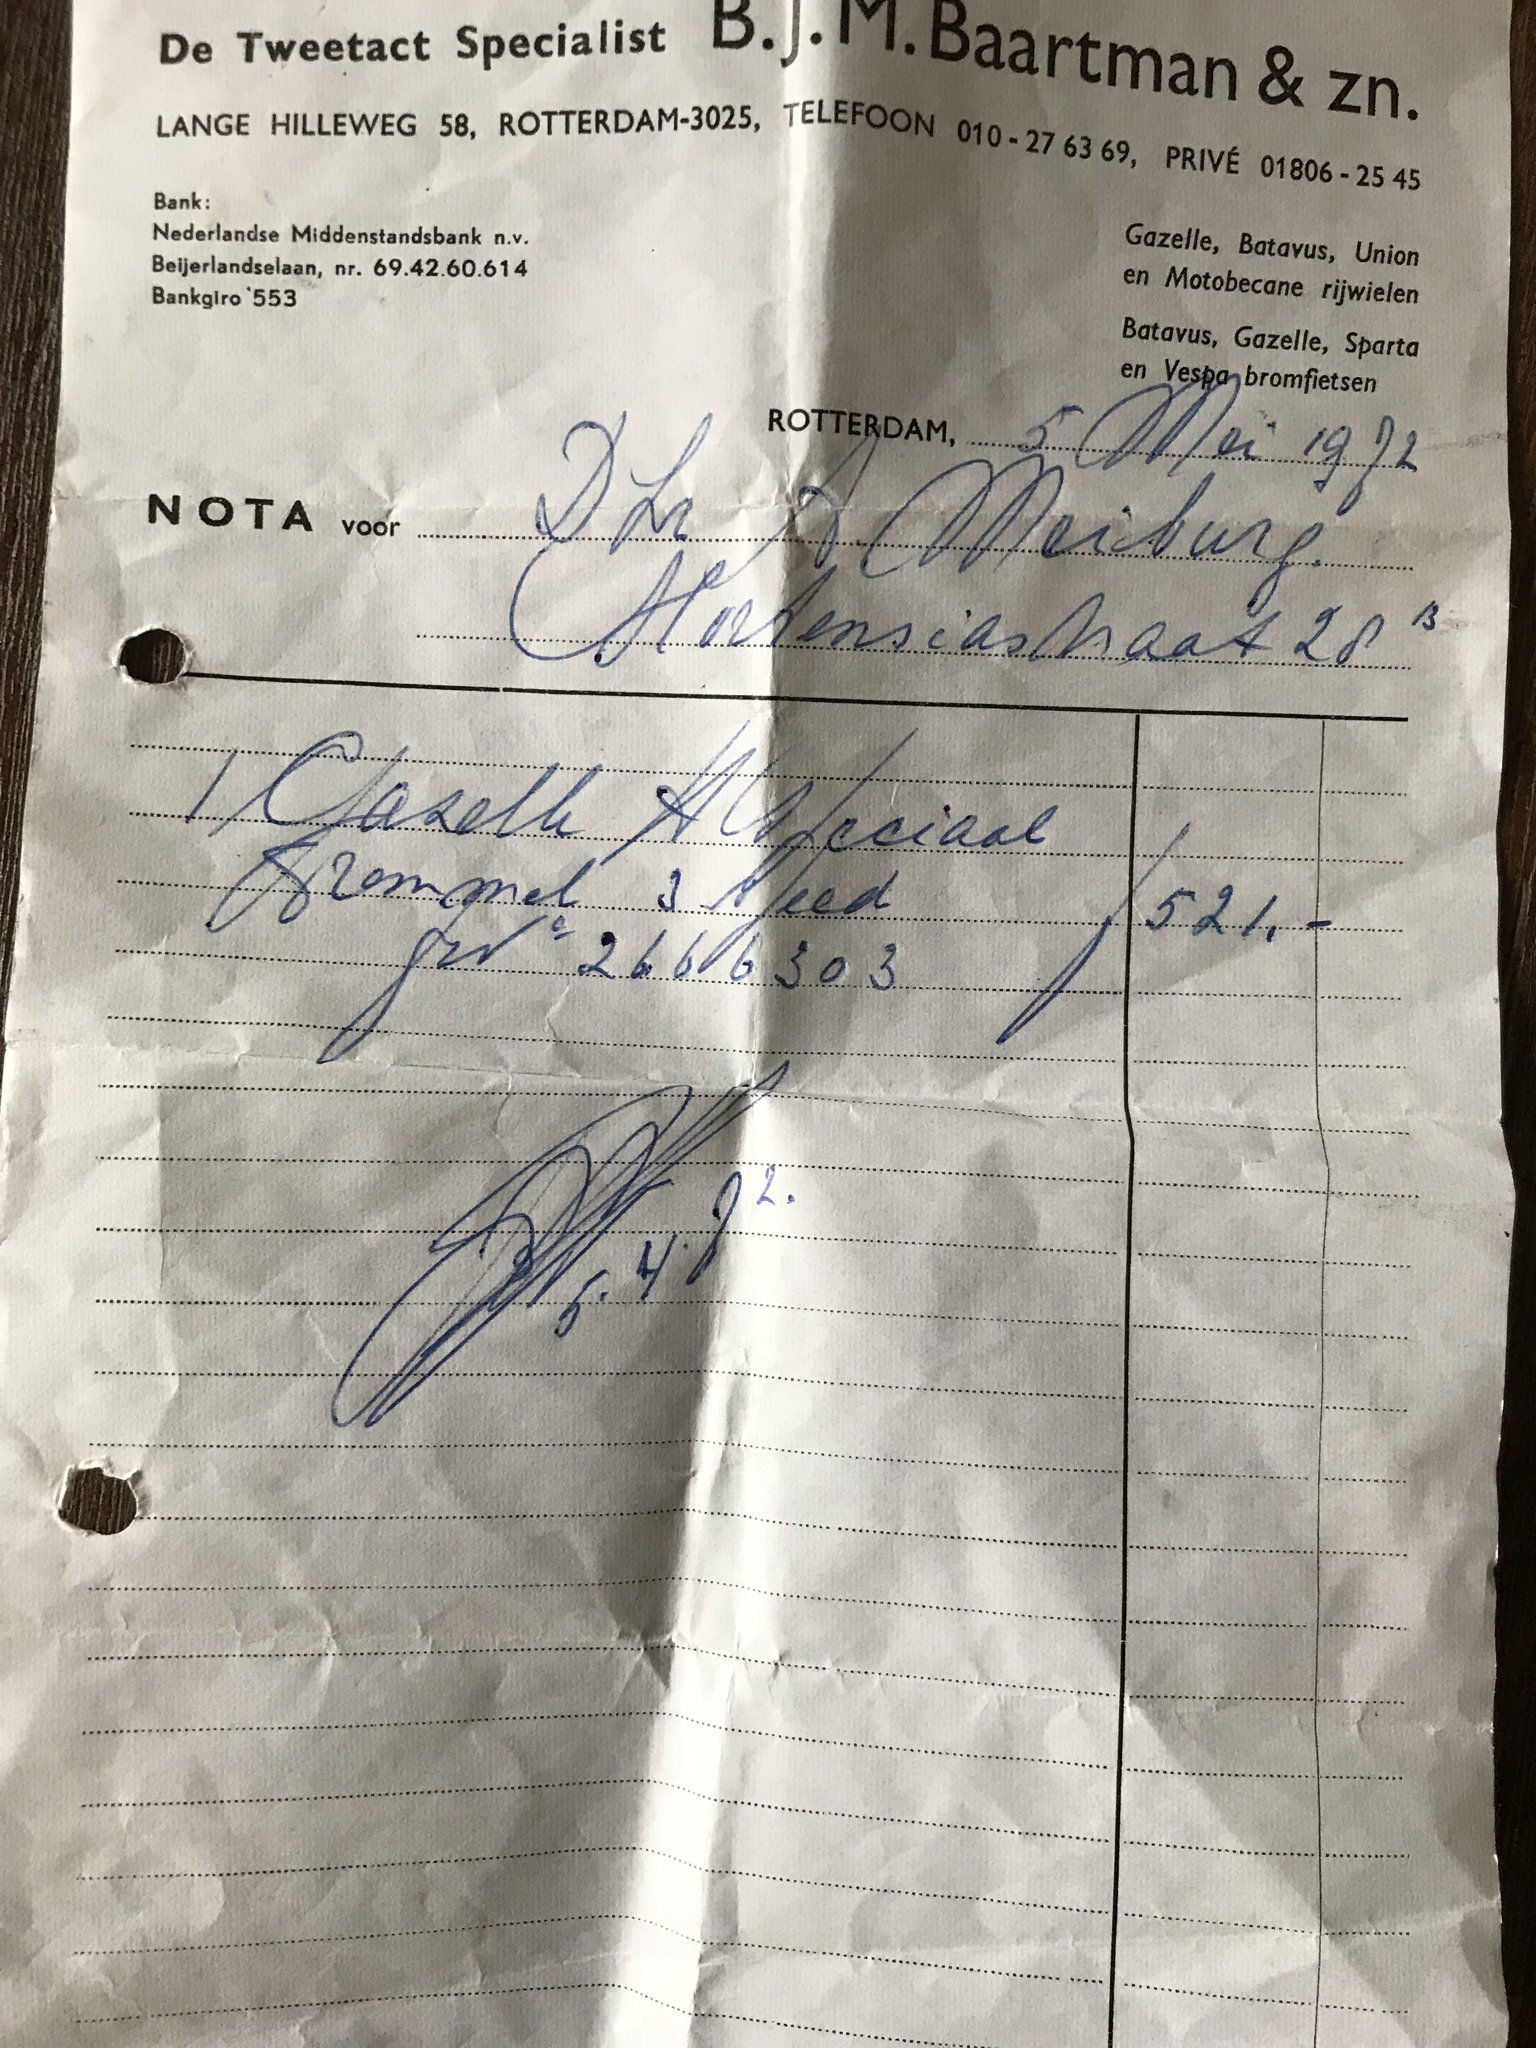 De Tweetact Specialist B.J.M. Baartman & zn.
LANGE HILLEWEG 58, ROTTERDAM-3025, TELEFOON 010-27 63 69, PRIVÉ 01806-25 45
Bank:
Nederlandse Middenstandsbank n.v.
Beijerlandselaan, nr. 69.42.60.614
Bankgiro 553
Gazelle, Batavus, Union
en Motobecane rijwielen
Batavus, Gazelle, Sparta
en Vespa bromfietsen
ROTTERDAM, 5 Mei 1972
NOTA voor D Hr A. Meiburg.
Hortensiastraat 28 B
1 Gazelle H Speciaal
Trommel 3 Speed 521.-
2666303
5.4.72.